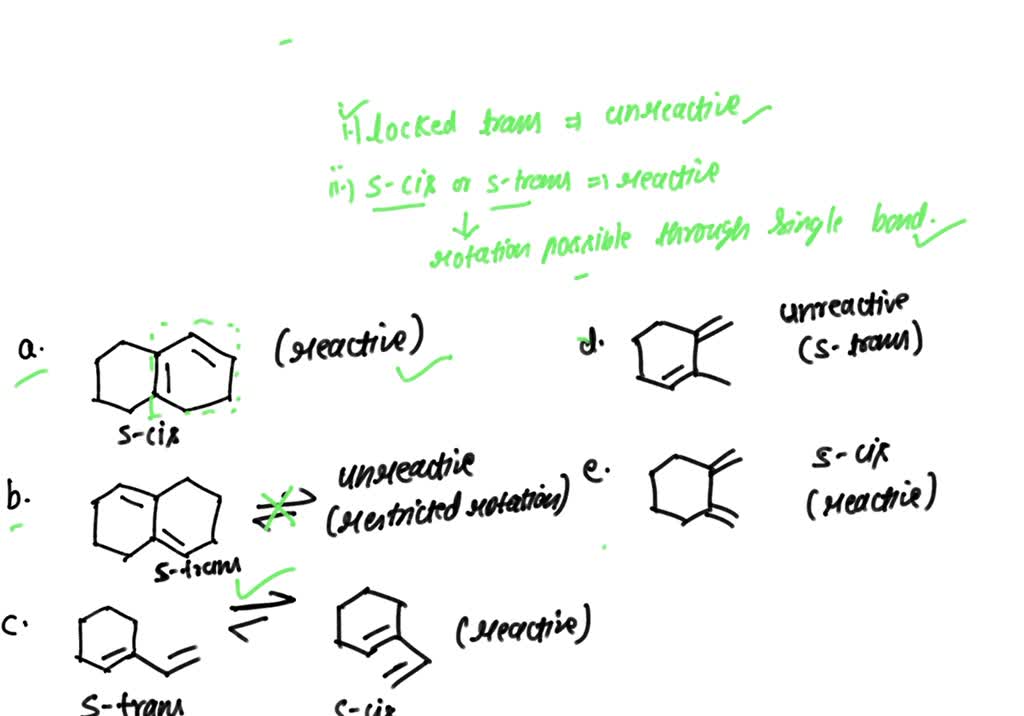 i.) locked trans ⇒ unreactive
ii.) s-cis or s-trans ⇒ reactive
rotation possible through single bond.
a.
(reactive)
s-cis
b.
unreactive
(restricted rotation)
s-trans
c.
(reactive)
s-trans
s-cis
d.
unreactive
(s-trans)
e.
s-cis
(reactive)